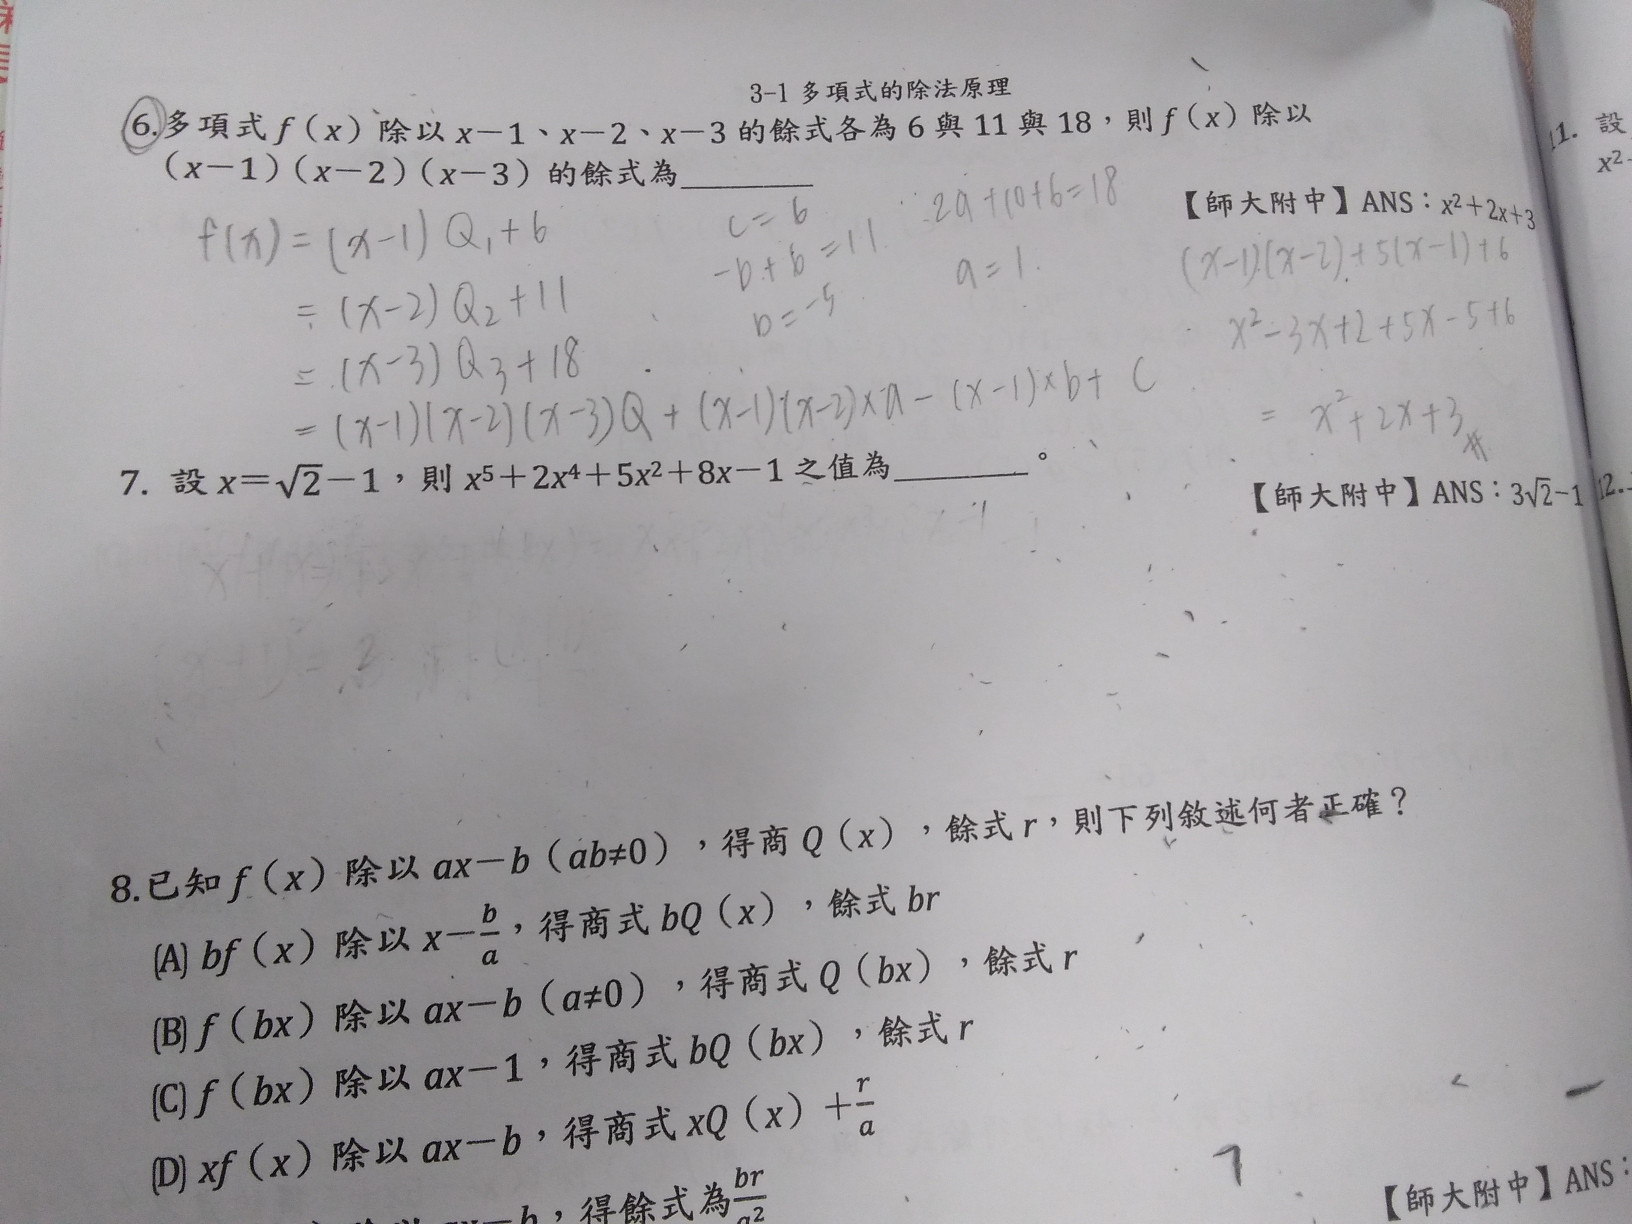 3-1 多項式的除法原理
6.多項式 f(x) 除以 x-1、x-2、x-3 的餘式各為 6 與 11 與 18,則 f(x) 除以
(x-1)(x-2)(x-3) 的餘式為______
【師大附中】ANS:x²+2x+3
f(x)=(x-1)Q₁+6
=(x-2)Q₂+11
=(x-3)Q₃+18
=(x-1)(x-2)(x-3)Q+(x-1)(x-2)×a-(x-1)×b+C
C=6
-b+6=11
b=-5
2a+10+6=18
a=1.
(x-1)(x-2)+5(x-1)+6
x²-3x+2+5x-5+6
=x²+2x+3#
7. 設 x=√2-1,則 x⁵+2x⁴+5x²+8x-1 之值為______。
【師大附中】ANS:3√2-1
8.已知 f(x) 除以 ax-b(ab≠0),得商 Q(x),餘式 r,則下列敘述何者正確?
(A) bf(x) 除以 x-b/a,得商式 bQ(x),餘式 br
(B) f(bx) 除以 ax-b(a≠0),得商式 Q(bx),餘式 r
(C) f(bx) 除以 ax-1,得商式 bQ(bx),餘式 r
(D) xf(x) 除以 ax-b,得商式 xQ(x)+r/a
ax-b,得餘式為 br/a²
【師大附中】ANS:
11. 設
x²-
12.